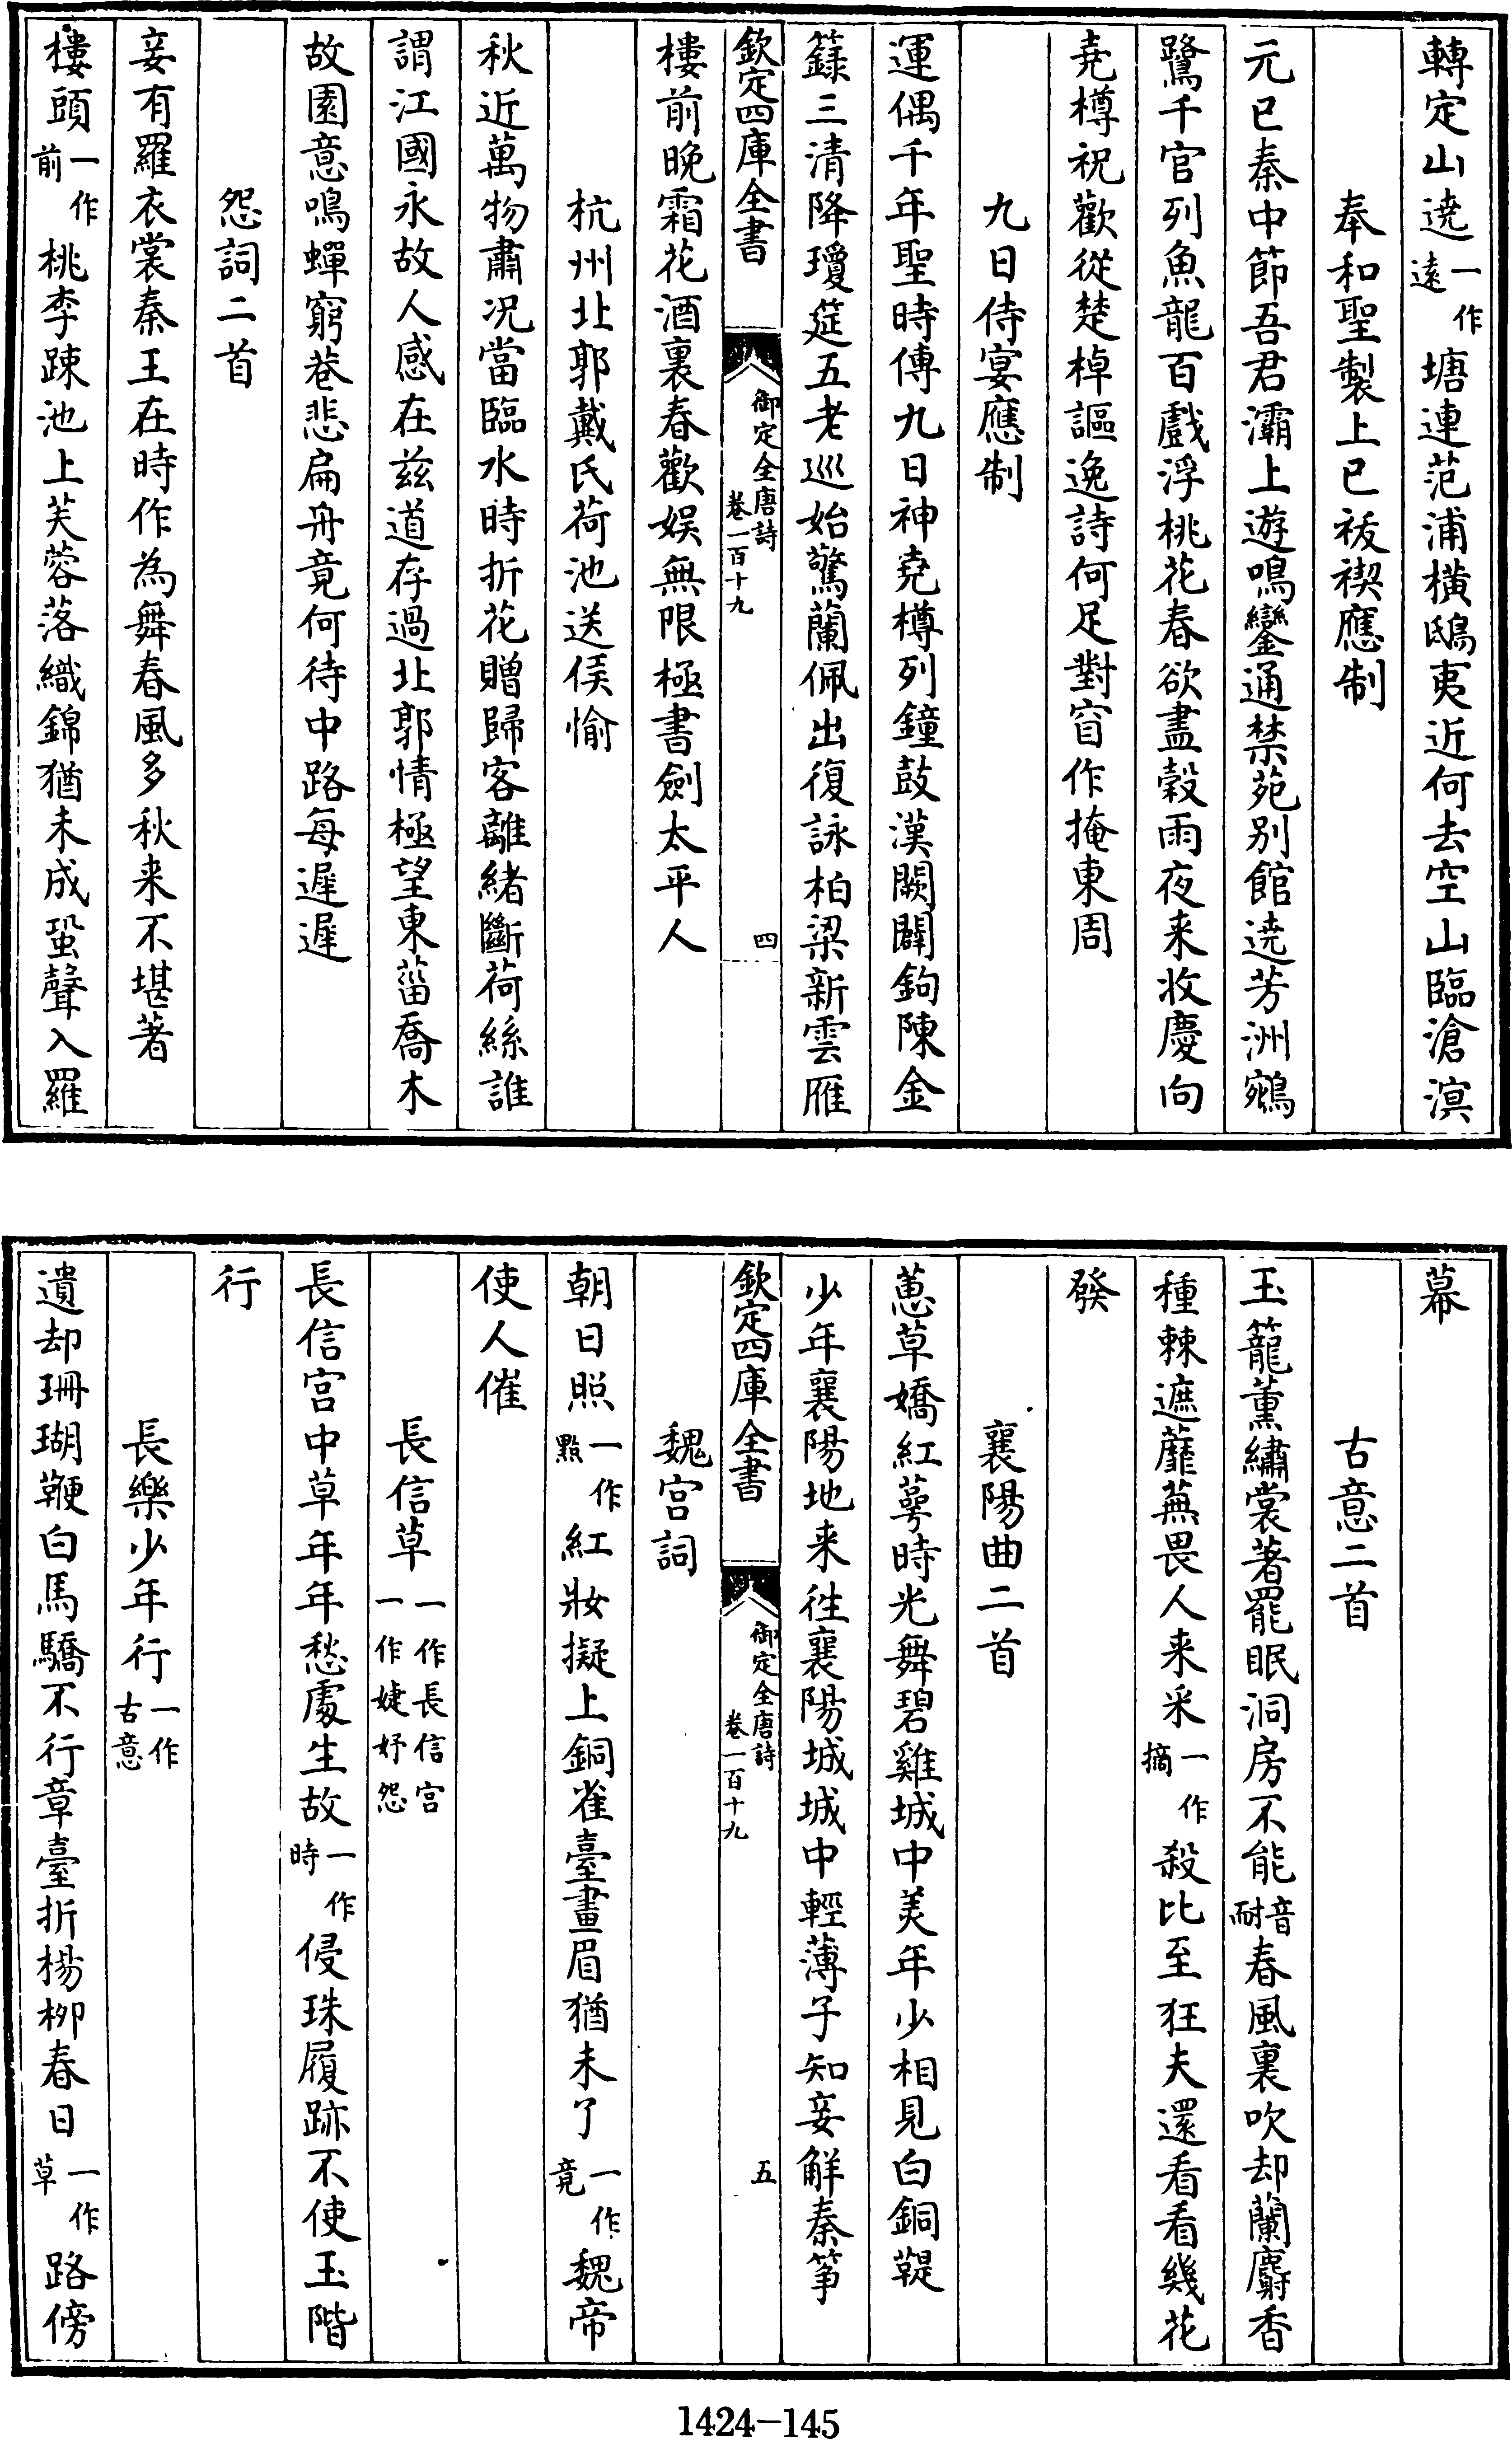 轉定山遶一作遠塘連范浦橫鴟夷近何去空山臨滄溟
奉和聖製上巳祓禊應制
元巳秦中節吾君灞上遊鳴鑾通禁苑别館遶芳洲鵷
鷺千官列魚龍百戲浮桃花春欲盡穀雨夜来收慶向
堯樽祝歡從楚棹謳逸詩何足對窅作掩東周
九日侍宴應制
運偶千年聖時傳九日神堯樽列鐘鼓漢闕闢鉤陳金
籙三清降瓊筵五老巡始驚蘭佩出復詠柏梁新雲雁
欽定四庫全書
御定全唐詩
卷一百十九
四
樓前晚霜花酒裏春歡娱無限極書劍太平人
杭州北郭戴氏荷池送侯愉
秋近萬物肅况當臨水時折花贈歸客離緒斷荷絲誰
謂江國永故人感在兹道存過北郭情極望東菑喬木
故園意鳴蟬窮巷悲扁舟竟何待中路每遲遲
怨詞二首
妾有羅衣裳秦王在時作為舞春風多秋来不堪著
樓頭一作前桃李踈池上芙蓉落織錦猶未成蛩聲入羅
幕
古意二首
玉籠薰繡裳著罷眠洞房不能音耐春風裏吹却蘭麝香
種棘遮蘼蕪畏人来采一作摘殺比至狂夫還看看幾花
發
襄陽曲二首
蕙草嬌紅萼時光舞碧雞城中美年少相見白銅鞮
少年襄陽地来徃襄陽城城中輕薄子知妾解秦筝
欽定四庫全書
御定全唐詩
卷一百十九
五
魏宫詞
朝日照一作點紅妝擬上銅雀臺畫眉猶未了一作竟魏帝
使人催
長信草一作長信宫一作婕妤怨
長信宫中草年年愁處生故一作時侵珠履跡不使玉階
行
長樂少年行一作古意
遺却珊瑚鞭白馬驕不行章臺折楊柳春日一作草路傍
1424-145